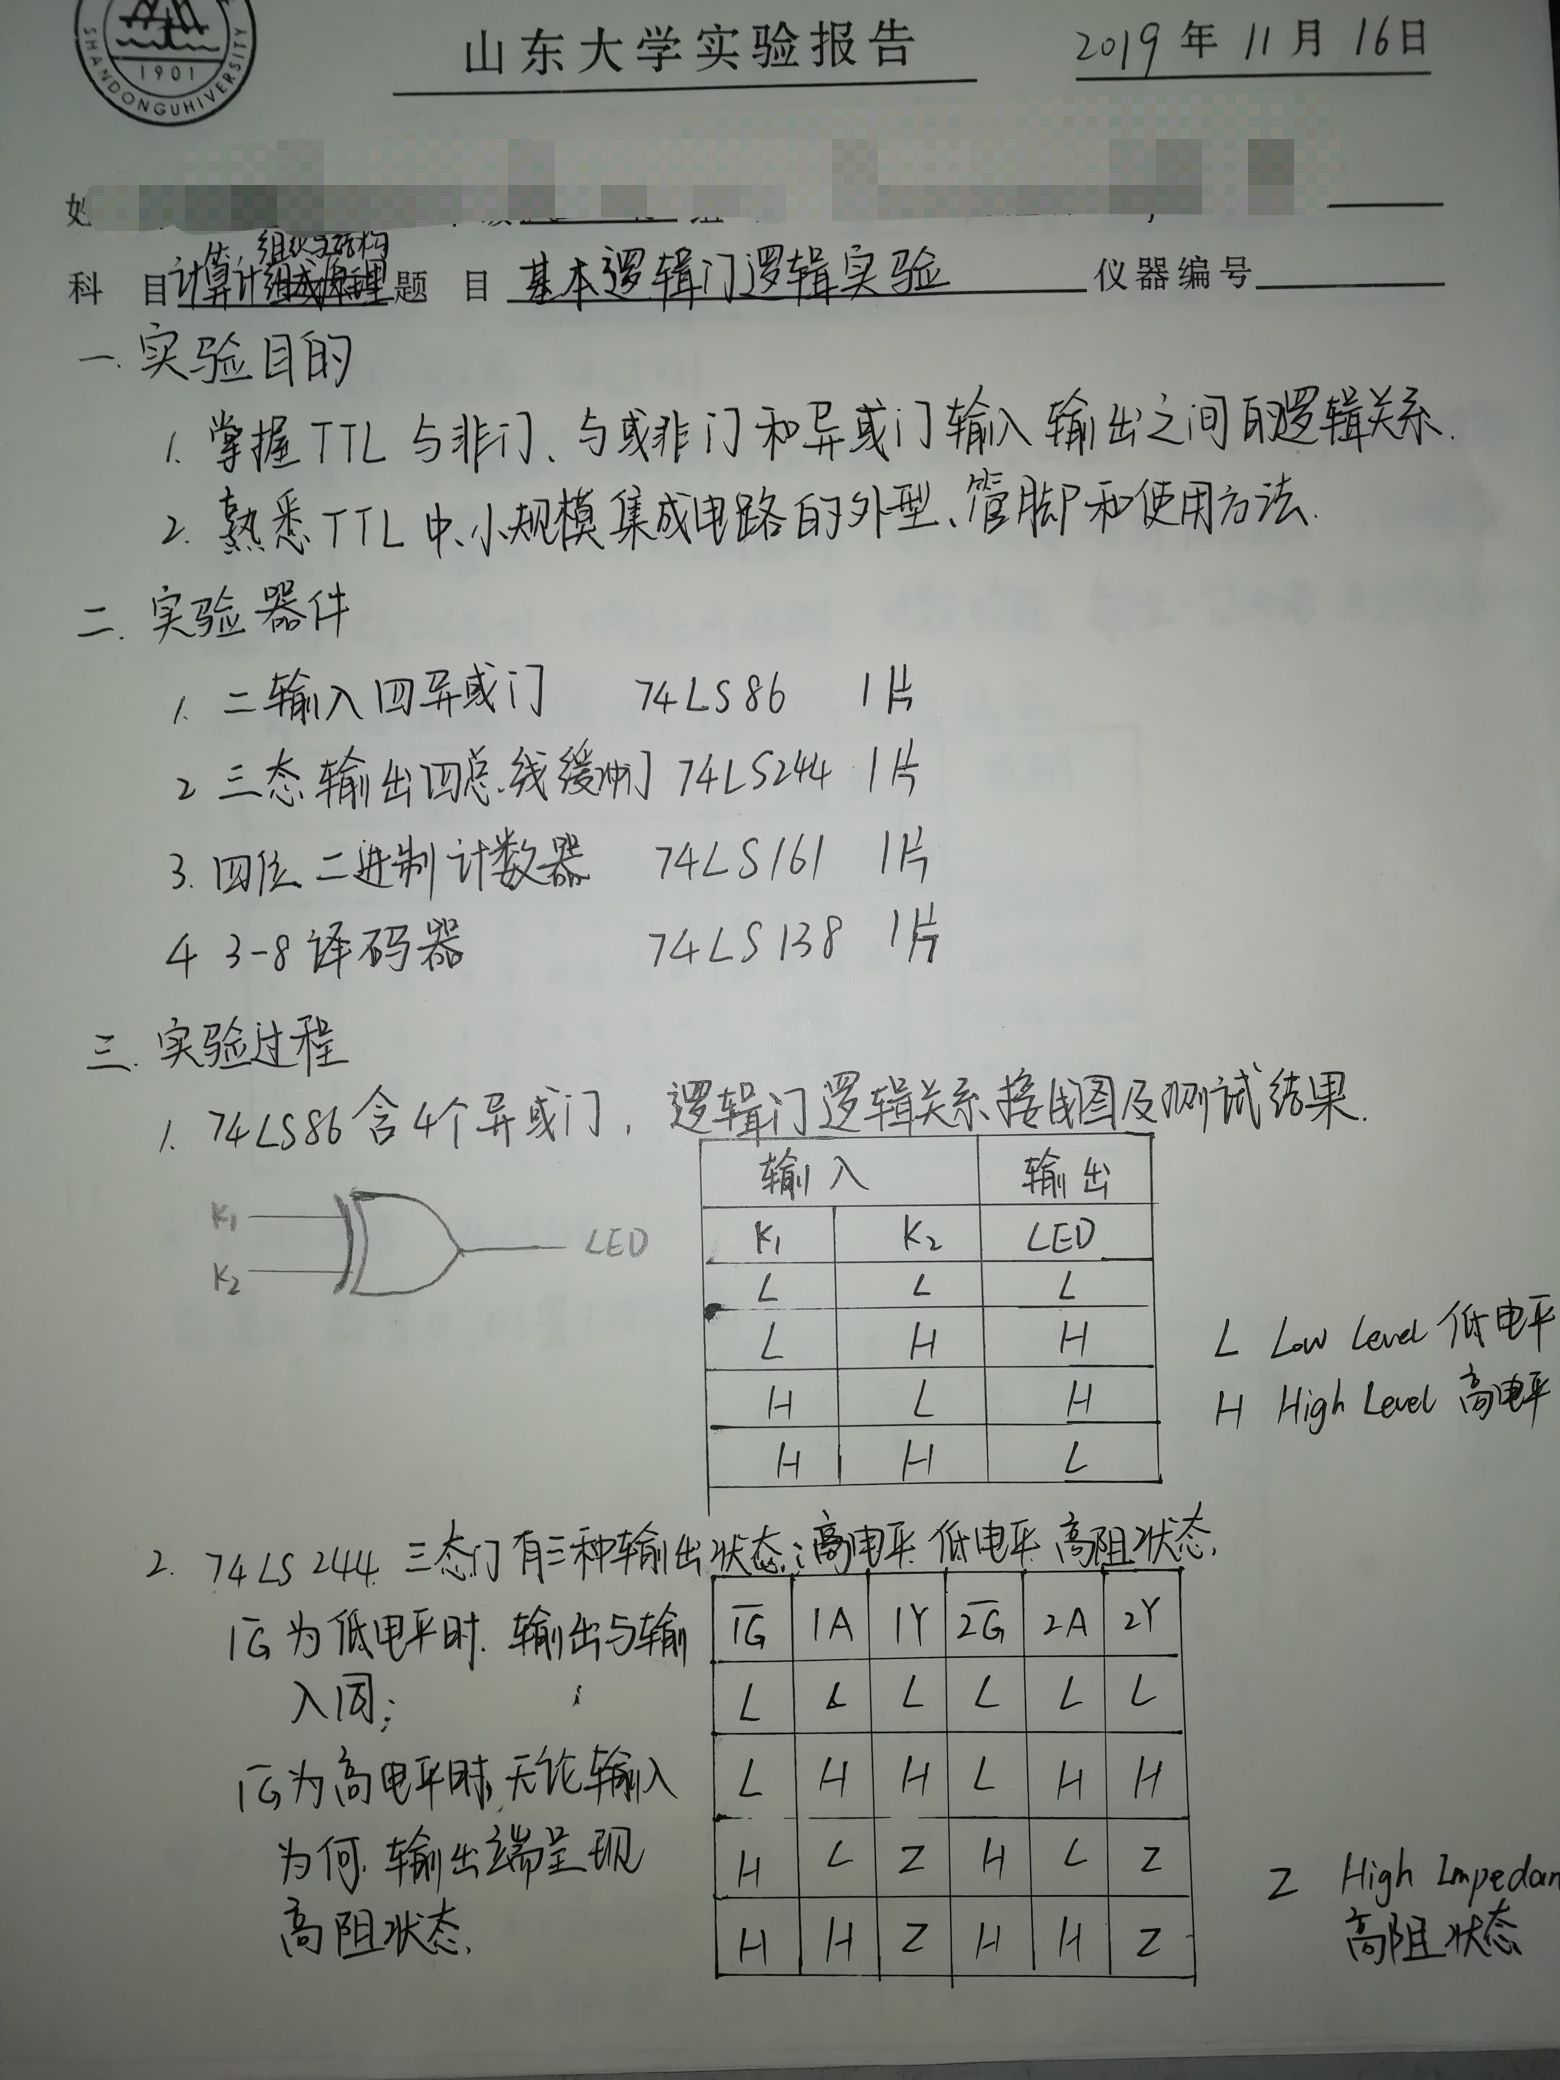 山东大学实验报告
2019年11月16日
1901
SHANDONG UNIVERSITY
科目 计算 题目 基本逻辑门逻辑实验 仪器编号
组织与结构
一.实验目的
1. 掌握TTL与非门、与或非门和异或门输入输出之间的逻辑关系.
2. 熟悉TTL中、小规模集成电路的外型、管脚和使用方法.
二.实验器件
1. 二输入四异或门 74LS86 1片
2 三态输出四总线缓冲门 74LS244 1片
3. 四位二进制计数器 74LS161 1片
4 3-8译码器 74LS138 1片
三.实验过程
1. 74LS86含4个异或门,逻辑门逻辑关系接线图及测试结果.
K1
K2
LED
输入 输出
K1 K2 LED
L L L
L H H
H L H
H H L
L Low Level 低电平
H High Level 高电平
2. 74LS244 三态门有三种输出状态:高电平 低电平 高阻状态.
1G̅为低电平时.输出与输
入同;
1G̅为高电平时,无论输入
为何.输出端呈现
高阻状态.
1G̅ 1A 1Y 2G̅ 2A 2Y
L L L L L L
L H H L H H
H L Z H L Z
H H Z H H Z
Z High Impedan
高阻状态